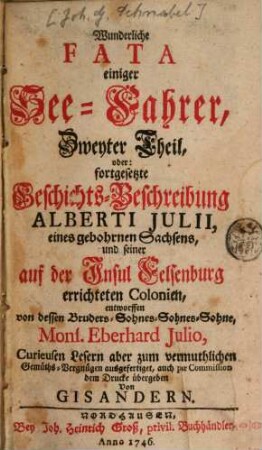 [Joh. G. Schnabel]
Wunderliche
FATA
einiger
See-Fahrer,
Zweyter Theil,
oder:
fortgesetzte
Geschichts-Beschreibung
ALBERTI JULII,
eines gebohrnen Sachsens,
und seiner
auf der Insul Felsenburg
errichteten Colonien,
entworffen
von dessen Bruders-Sohnes-Sohnes-Sohne,
Mons. Eberhard Julio,
Curieusen Lesern aber zum vermuthlichen
Gemüths-Vergnügen ausgefertiget, auch par Commission
dem Drucke übergeben
Von
GISANDERN.
NORDHAUSEN,
Bey Joh. Heinrich Groß, privil. Buchhändler.
Anno 1746.